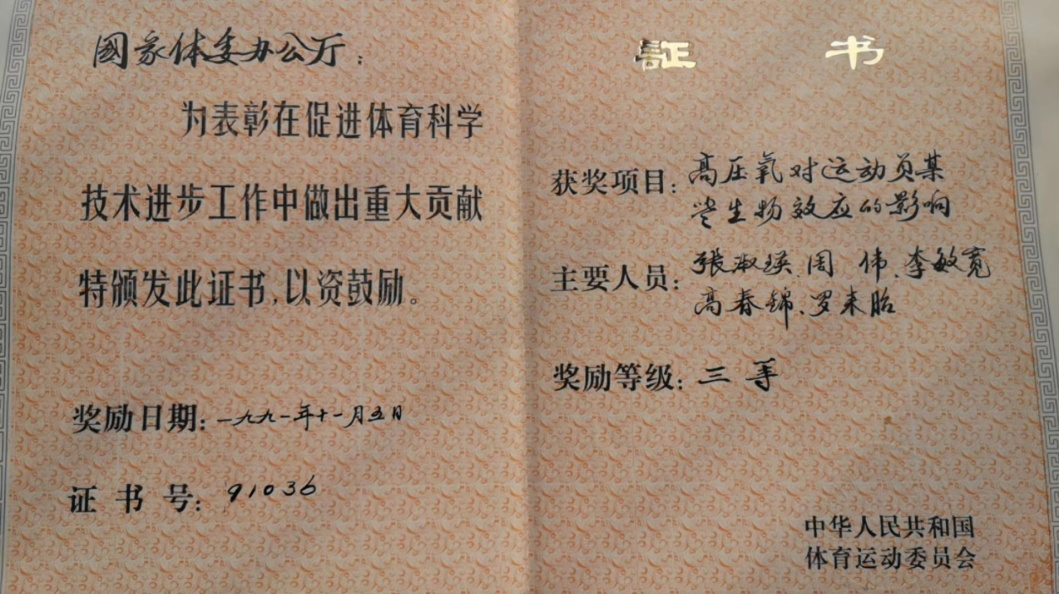 國家体委办公厅：
为表彰在促进体育科学
技术进步工作中做出重大贡献
特颁发此证书，以资鼓励。
奖励日期：一九九一年十一月五日
证书号：91036
証书
获奖项目：高压氧对运动员某
些生物效应的影响
主要人员：張淑瑛、周 伟、李敏宽
高春锦、罗来胎
奖励等级：三等
中华人民共和国
体育运动委员会